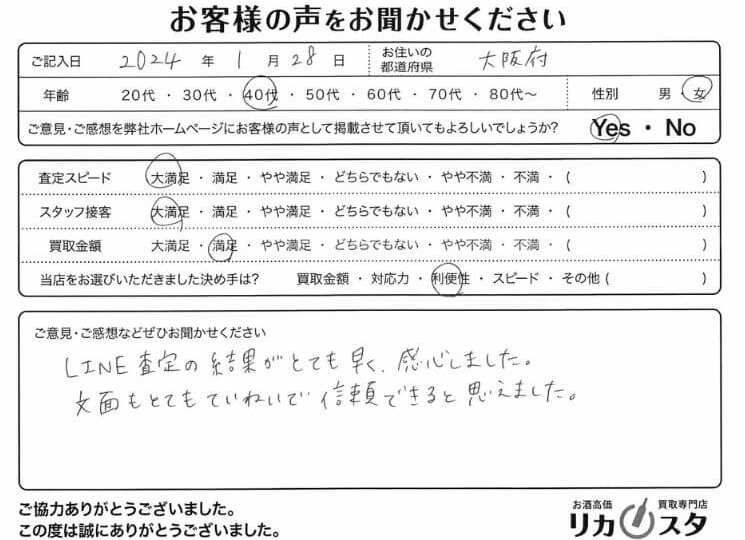 お客様の声をお聞かせください
ご記入日 2024 年 1 月 28 日 お住いの都道府県 大阪府
年齢 20代 ・ 30代 ・ 40代 ・ 50代 ・ 60代 ・ 70代 ・ 80代〜 性別 男 ・ 女
ご意見・ご感想を弊社ホームページにお客様の声として掲載させて頂いてもよろしいでしょうか? Yes ・ No
査定スピード 大満足 ・ 満足 ・ やや満足 ・ どちらでもない ・ やや不満 ・ 不満 ・ ( )
スタッフ接客 大満足 ・ 満足 ・ やや満足 ・ どちらでもない ・ やや不満 ・ 不満 ・ ( )
買取金額 大満足 ・ 満足 ・ やや満足 ・ どちらでもない ・ やや不満 ・ 不満 ・ ( )
当店をお選びいただきました決め手は? 買取金額 ・ 対応力 ・ 利便性 ・ スピード ・ その他 ( )
ご意見・ご感想などぜひお聞かせください
LINE査定の結果がとても早く、感心しました。
文面もとてもていねいで信頼できると思えました。
ご協力ありがとうございました。
この度は誠にありがとうございました。
お酒高価 買取専門店
リカスタ